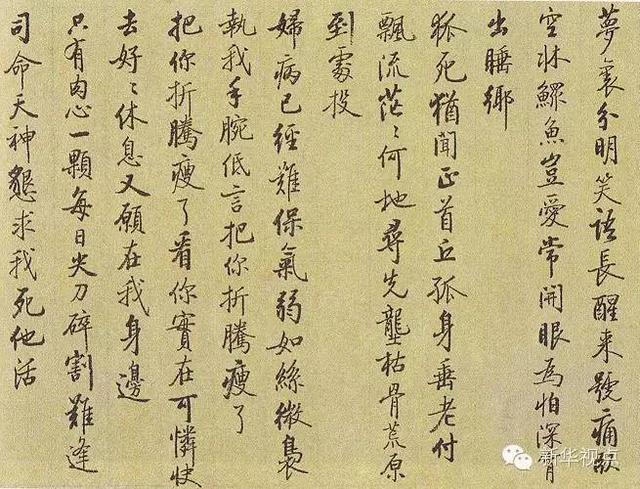 夢裏分明笑語長醒來號痛卧
空牀鰥魚豈愛常開眼為怕深宵
出睡鄉
狐死猶聞正首丘孤身垂老付
飄流茫〻何地尋先壟枯骨荒原
到處投
婦病已經難保氣弱如絲微裊
執我手腕低言把你折騰瘦了
把你折騰瘦了看你實在可憐快
去好〻休息又願在我身邊
只有肉心一顆每日尖刀碎割難逢
司命天神懇求我死他活
新华视点